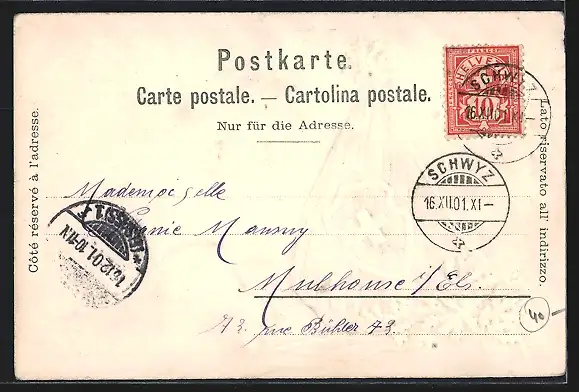 Postkarte.
Carte postale. — Cartolina postale.
Nur für die Adresse.
Côté réservé à l'adresse.
Lato riservato all' indirizzo.
HELVETIA
10
SCHWYZ
16.XII.01.XI–
SCHWYZ
16.XII.01.XI–
Mademoiselle
Mulhouse i/Els.
rue Bühler 43.
40